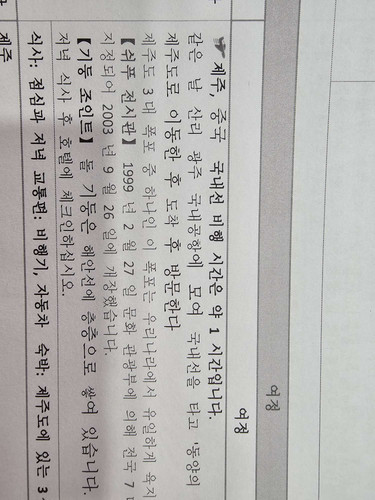 여정
여정
제주, 중국 국내선 비행 시간은 약 1 시간입니다.
같은 날 산리 광주 국내공항에 모여 국내선을 타고 '동양의
제주도로 이동한 후 도착 후 방문한다
제주도 3 대 폭포 중 하나인 이 폭포는 우리나라에서 유일하게 육지
【쉬푸 전시관】 1999 년 2 월 27 일 문화 관광부에 의해 전국 7
지정되어 2003 년 9 월 26 일에 개장했습니다.
【기둥 조인트】 돌 기둥은 해안선에 층층으로 쌓여 있습니다.
저녁 식사 후 호텔에 체크인하십시오.
식사: 점심과 저녁 교통편: 비행기, 자동차 숙박: 제주도에 있는 3
제주